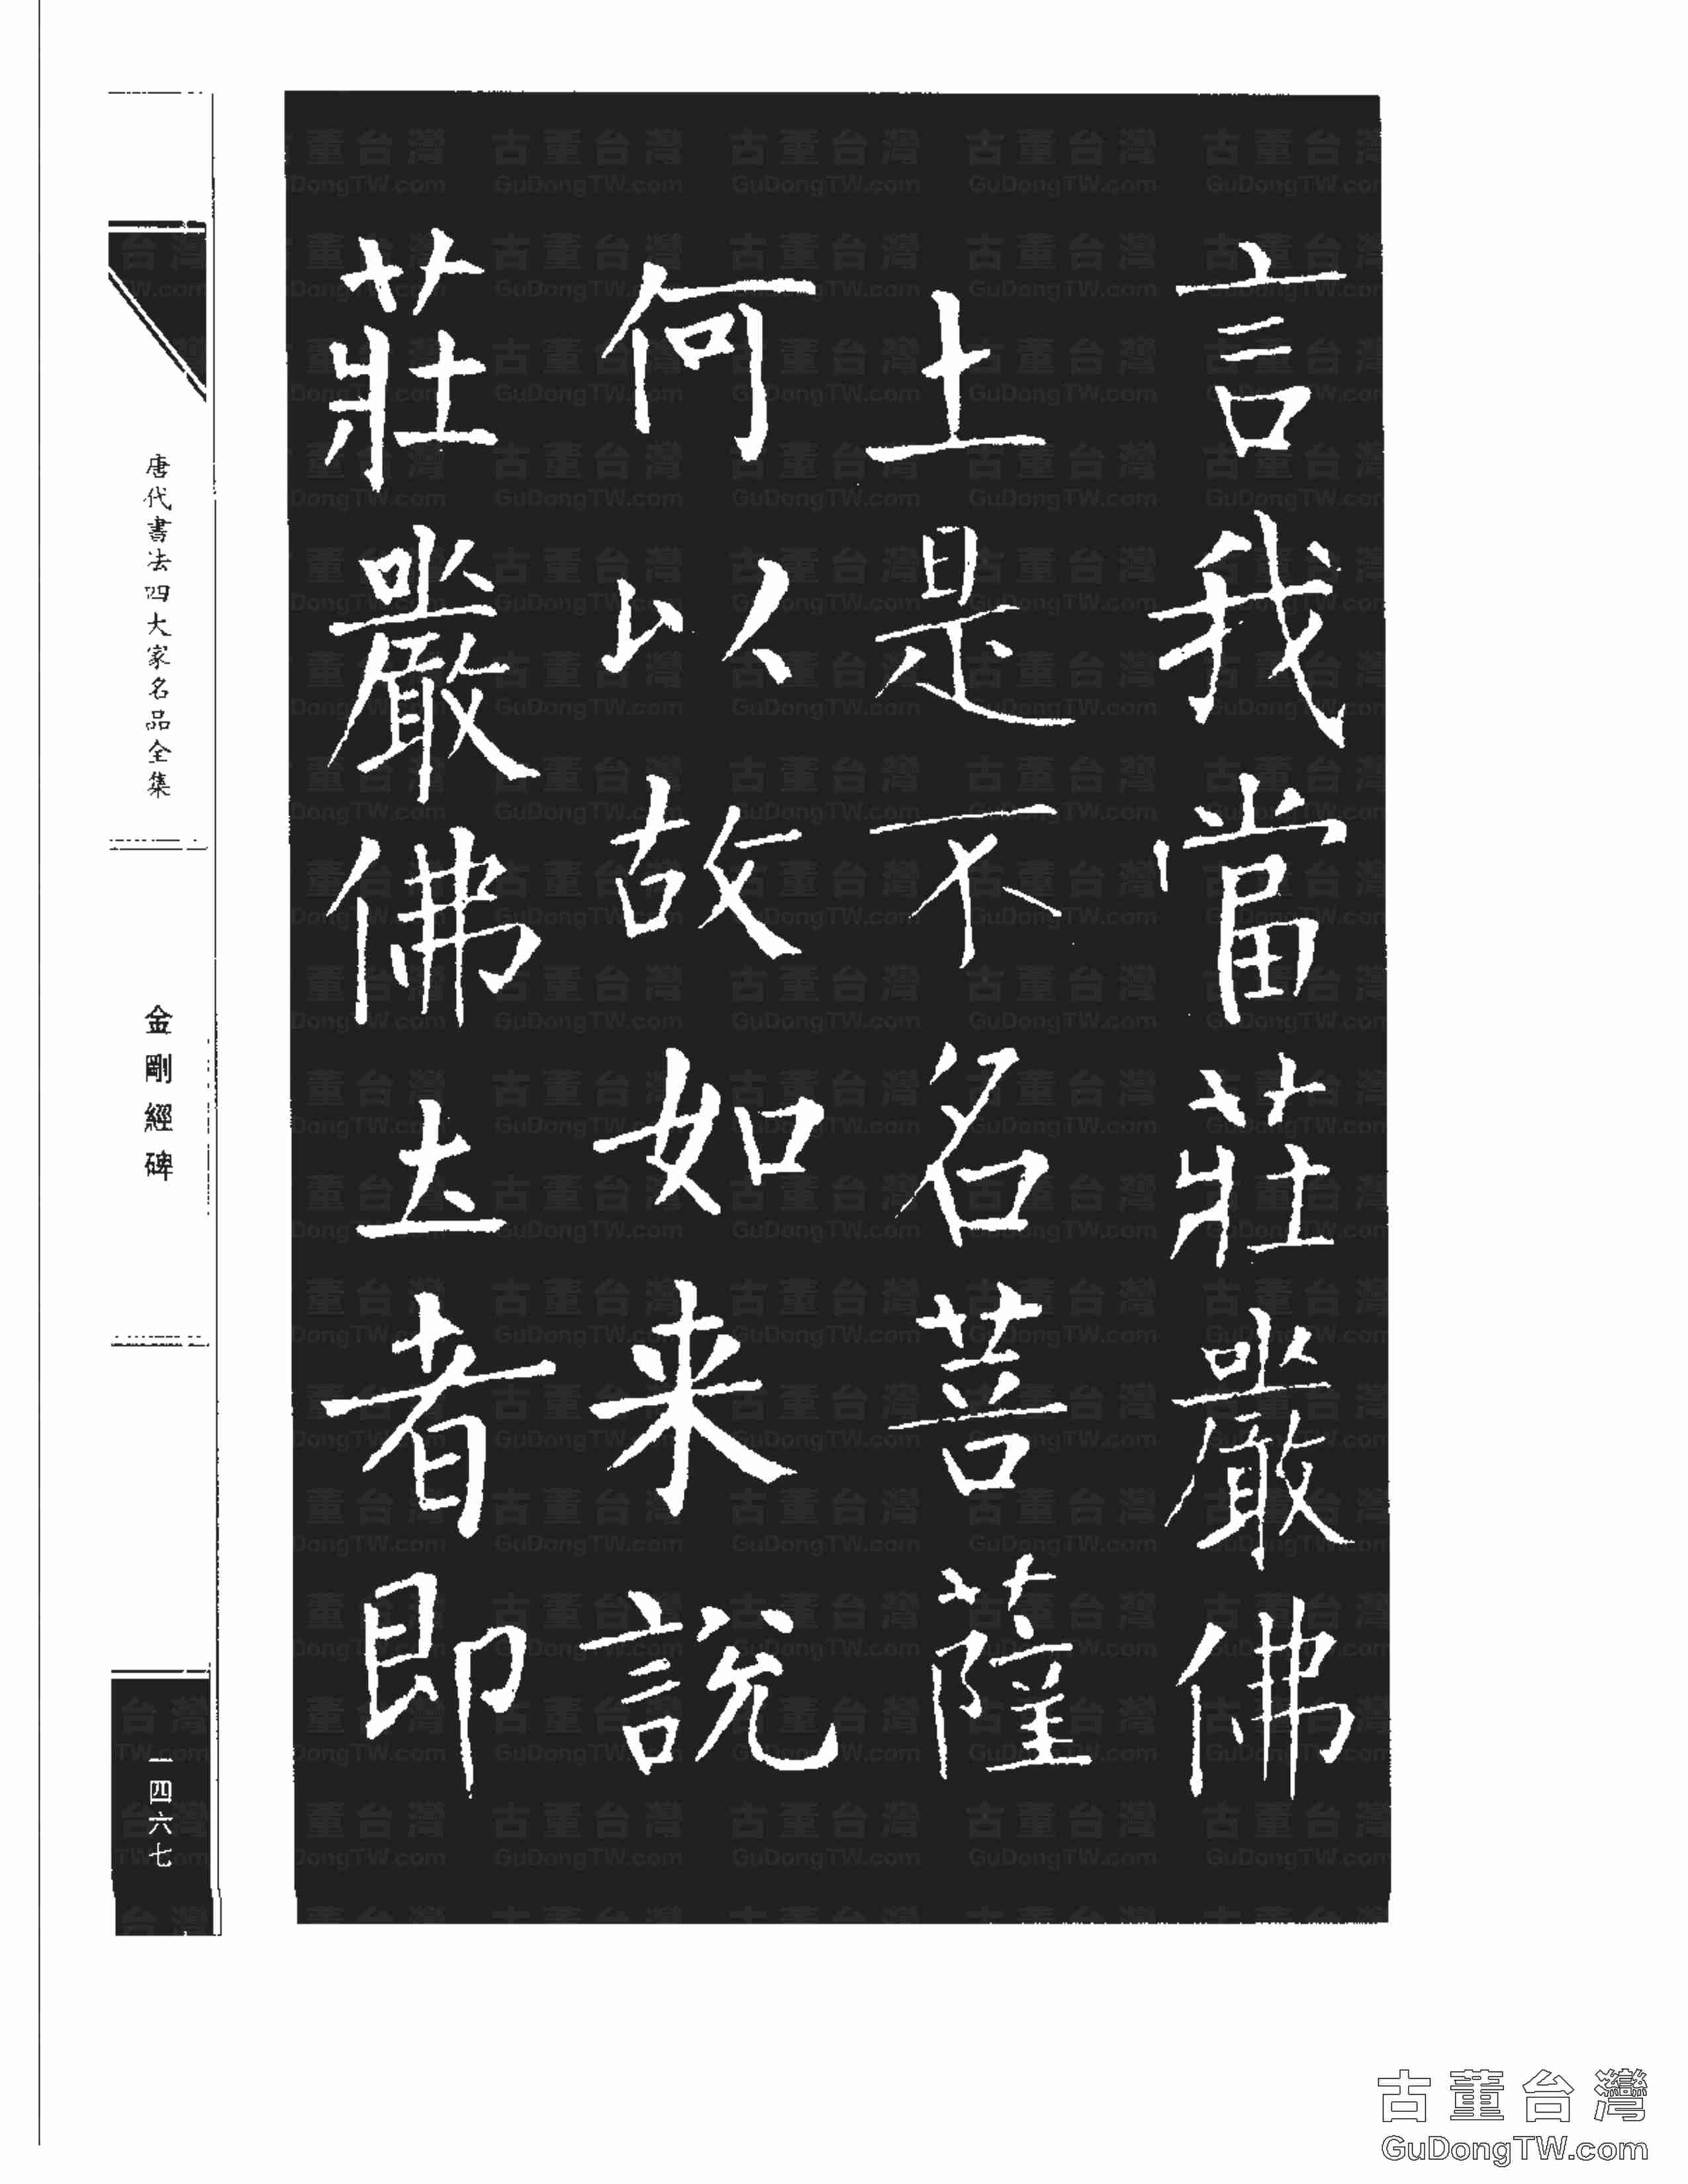 言我當莊嚴佛
土是不名菩薩
何以故如来說
莊嚴佛土者即
唐代書法四大家名品全集
金剛經碑
一四六七
古董台灣
GuDongTW.com